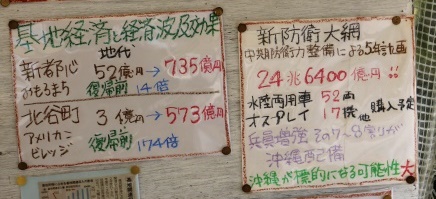 基地経済と経済波及効果
地代
新都心 52億円→735億円
おもろまち 復帰前 14倍
北谷町 3億円→573億円
アメリカン 復帰前
ビレッジ 174倍
新防衛大綱
中期防衛力整備による5年計画
24兆6400億円!!
水陸両用車 52両
オスプレイ 17機 他 購入予定
兵員増強 その7〜8割りが
沖縄配備
沖縄が標的にせる可能性大